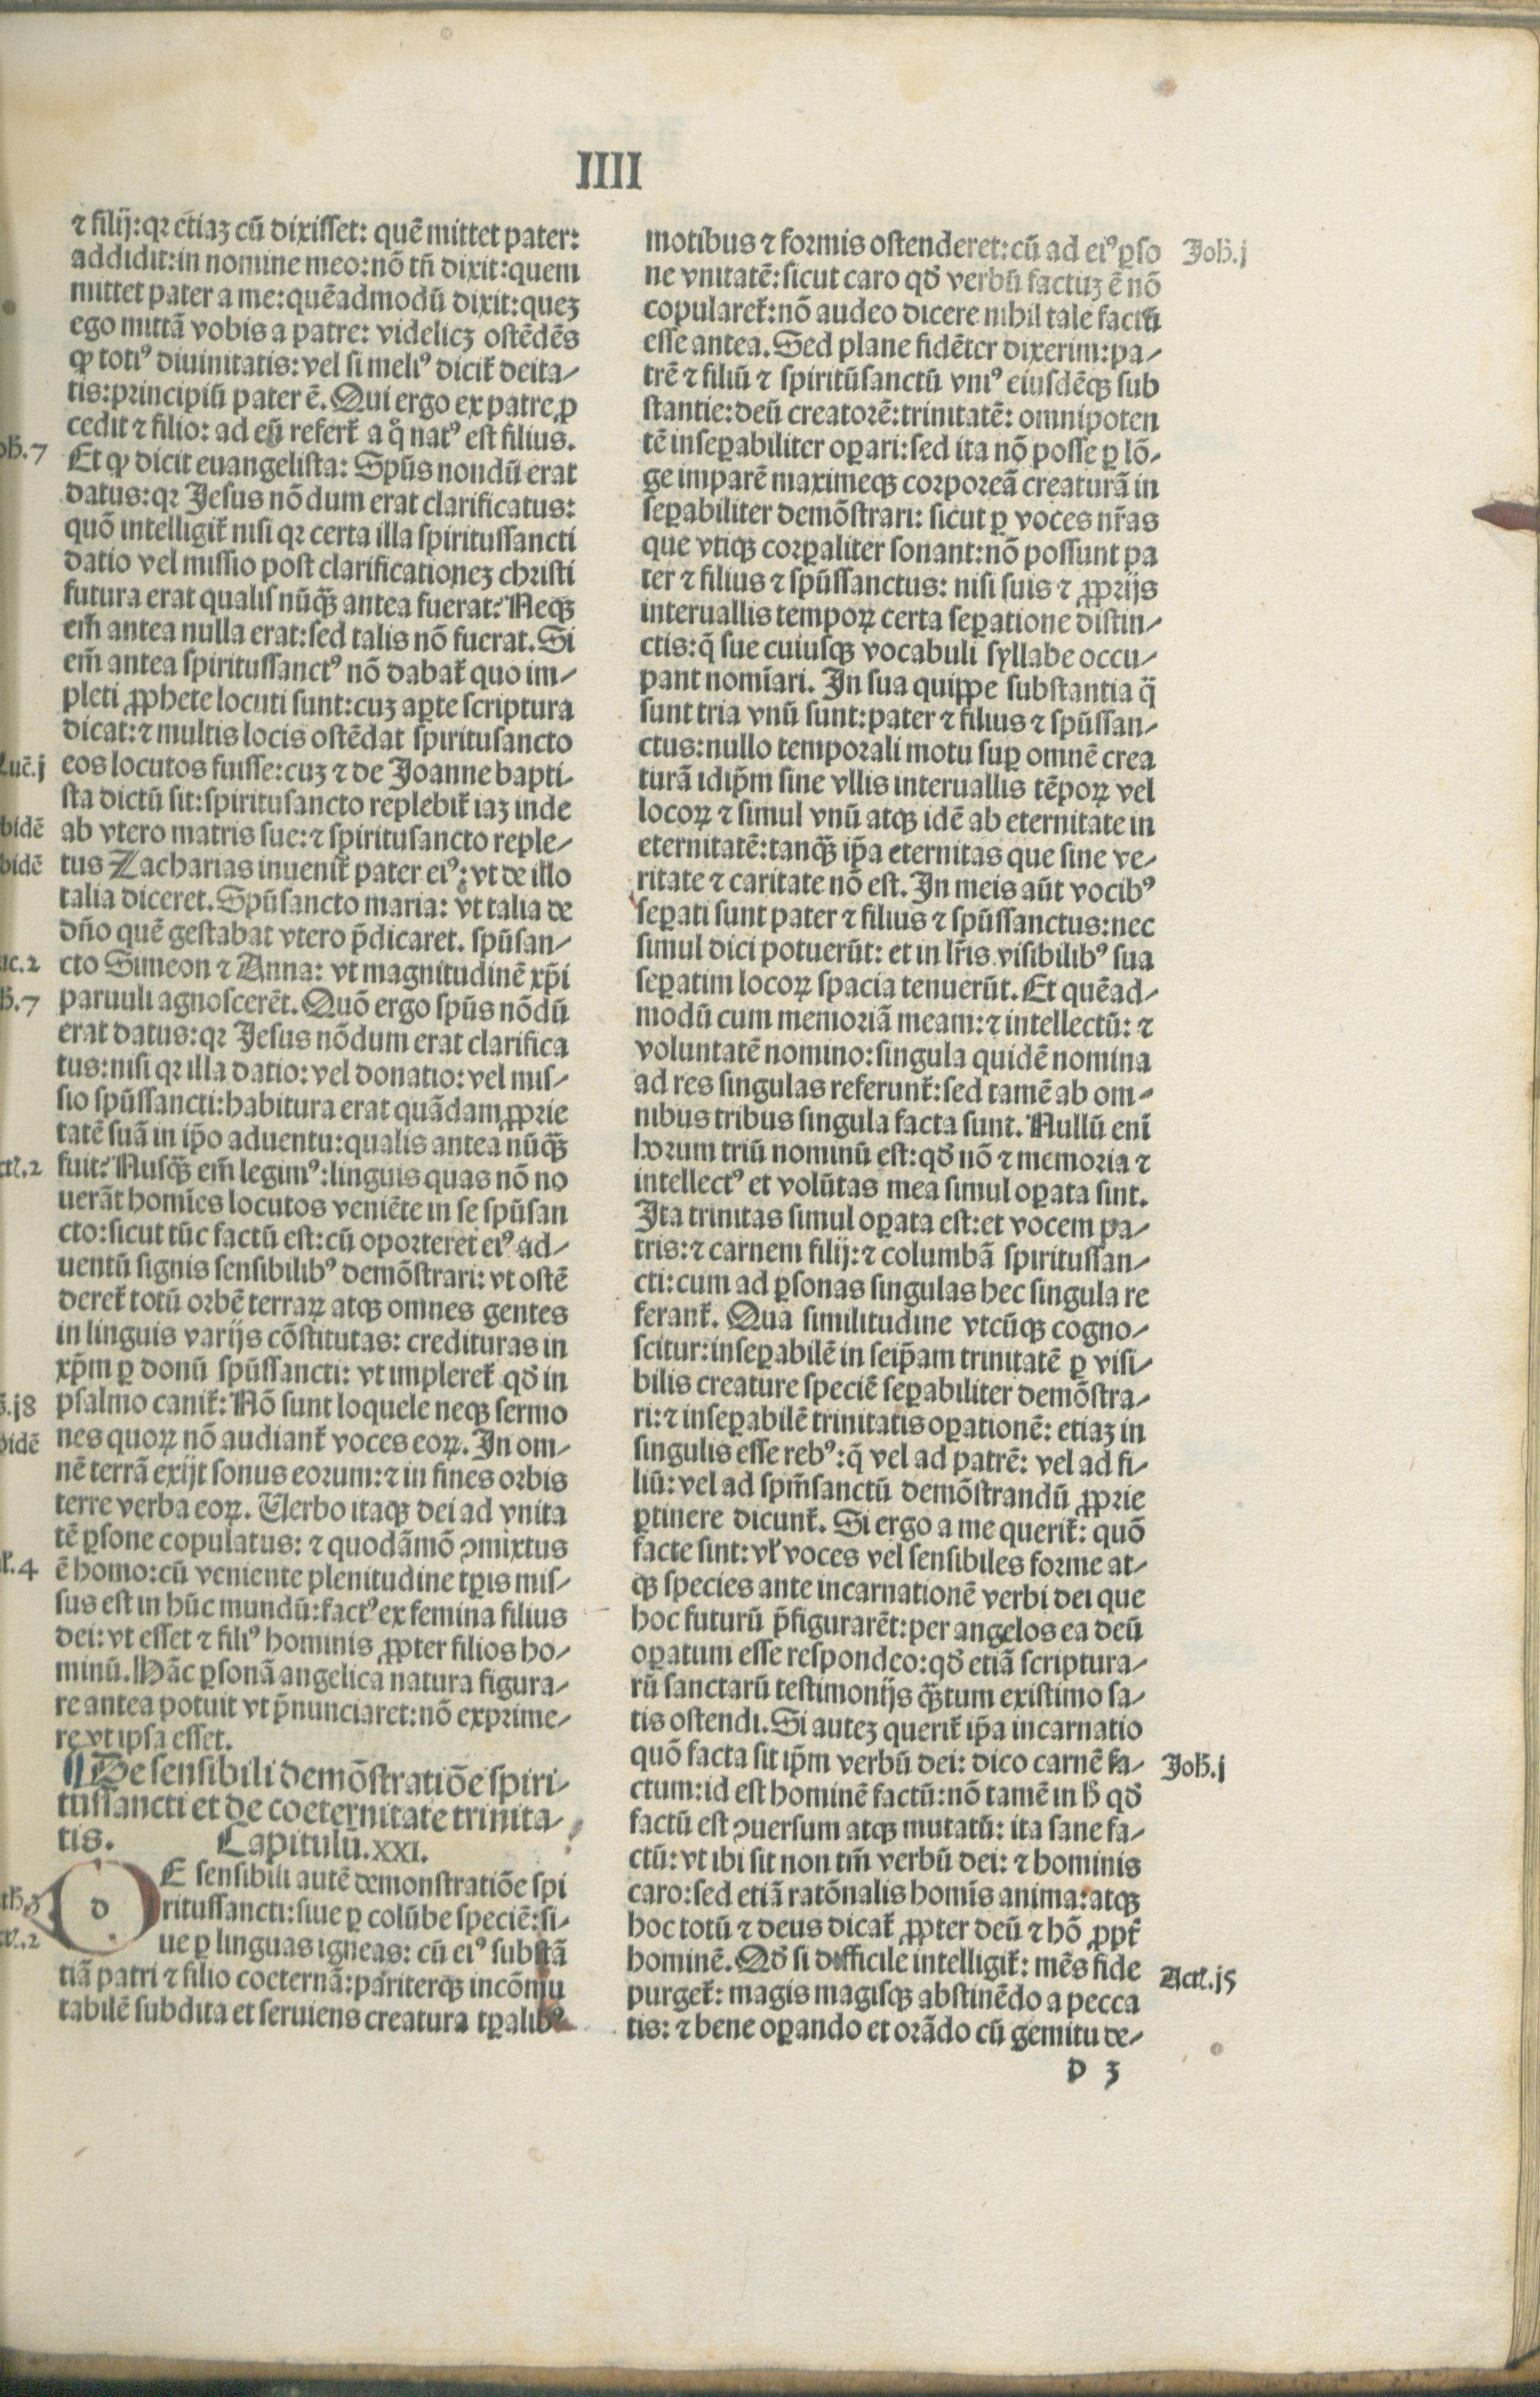 IIII
⁊ filij: qꝛ etiaꝫ cū dixisset: quē mittet pater:
addidit: in nomine meo: nō tn̄ dixit: quem
mittet pater a me: quēadmodū dixit: queꝫ
ego mittā vobis a patre: videlicꝫ ostēdēs
ꝙ totiꝰ diuinitatis: vel si meliꝰ dicit̄ deita⸗
tis: principiū pater ē. Qui ergo ex patre ꝓ
cedit ⁊ filio: ad eū refert̄ a q̊ natꝰ est filius.
oh̄. 7
Et ꝙ dicit euangelista: Spūs nondū erat
datus: qꝛ Jesus nōdum erat clarificatus:
quō intelligit̄ nisi qꝛ certa illa spiritussancti
datio vel missio post clarificationeꝫ christi
futura erat qualis nūqꝫ̄ antea fuerat? Neqꝫ
em̄ antea nulla erat: sed talis nō fuerat. Si
em̄ antea spiritussanctꝰ nō dabat̄ quo im⸗
pleti ꝓphete locuti sunt: cuꝫ aꝑte scriptura
dicat: ⁊ multis locis ostēdat spiritusancto
Luc̄. j
eos locutos fuisse: cuꝫ ⁊ de Joanne bapti⸗
sta dictū sit: spiritusancto replebit̄ iaꝫ inde
bidē
ab vtero matris sue: ⁊ spiritusancto reple⸗
bidē
tus Zacharias inuenit̄ pater eiꝰ: vt de illo
talia diceret. Spūsancto maria: vt talia de
dn̄o quē gestabat vtero p̄dicaret. spūsan⸗
uc. 2
cto Simeon ⁊ Anna: vt magnitudinē xp̄i
h̄. 7
paruuli agnoscerēt. Quō ergo spūs nōdū
erat datus: qꝛ Jesus nōdum erat clarifica
tus: nisi qꝛ illa datio: vel donatio: vel mis⸗
sio spūssancti: habitura erat quādam ꝓprie
tatē suā in ip̄o aduentu: qualis antea nūqꝫ̄
ctꝭ. 2
fuit? Nusqꝫ̄ em̄ legimꝰ: linguis quas nō no
uerāt homīes locutos veniēte in se spūsan
cto: sicut tūc factū est: cū oporteret eiꝰ ad⸗
uentū signis sensibilibꝰ demōstrari: vt ostē
deret̄ totū orbē terraꝝ atqꝫ omnes gentes
in linguis varijs cōstitutas: credituras in
xp̄m ꝑ donū spūssancti: vt impleret̄ qd̄ in
s̄. j8
psalmo canit̄: Nō sunt loquele neqꝫ sermo
bidē
nes quoꝝ nō audiant̄ voces eoꝝ. In om⸗
nē terrā exijt sonus eorum: ⁊ in fines orbis
terre verba eoꝝ. Verbo itaqꝫ dei ad vnita
tē ꝑsone copulatus: ⁊ quodāmō ꝯmixtus
l̄. 4
ē homo: cū veniente plenitudine tꝑis mis⸗
sus est in hūc mundū: factꝰ ex femina filius
dei: vt esset ⁊ filiꝰ hominis ꝓpter filios ho⸗
minū. Hāc ꝑsonā angelica natura figura⸗
re antea potuit vt p̄nunciaret: nō exprime⸗
re vt ipsa esset.
¶ De sensibili demōstratiōe spiri⸗
tussancti et de coeternitate trinita⸗
tis. Capitulū. XXI.
dE sensibili autē demonstratiōe spi
th̄. 3
ritussancti: siue ꝑ colūbe speciē: si⸗
ctꝭ. 2
ue ꝑ linguas igneas: cū eiꝰ substā
tiā patri ⁊ filio coeternā: pariterqꝫ incōmu
tabilē subdita et seruiens creatura tꝑalibꝰ
motibus ⁊ formis ostenderet: cū ad eiꝰ ꝑso
Joh̄. j
ne vnitatē: sicut caro qd̄ verbū factuꝫ ē nō
copularet̄: nō audeo dicere nihil tale factū
esse antea. Sed plane fidēter dixerim: pa⸗
trē ⁊ filiū ⁊ spiritūsanctū vniꝰ eiusdēqꝫ sub
stantie: deū creatorē: trinitatē: omnipoten
tē inseꝑabiliter oꝑari: sed ita nō posse ꝑ lō⸗
ge imparē maximeqꝫ corporeā creaturā in
seꝑabiliter demōstrari: sicut ꝑ voces nr̄as
que vtiqꝫ corꝑaliter sonant: nō possunt pa
ter ⁊ filius ⁊ spūssanctus: nisi suis ⁊ ꝓprijs
interuallis tempoꝝ certa seꝑatione distin⸗
ctis: q̄ sue cuiusqꝫ vocabuli syllabe occu⸗
pant nomīari. In sua quippe substantia q̄
sunt tria vnū sunt: pater ⁊ filius ⁊ spūssan⸗
ctus: nullo temporali motu suꝑ omnē crea
turā idip̄m sine vllis interuallis tēpoꝝ vel
locoꝝ ⁊ simul vnū atqꝫ idē ab eternitate in
eternitatē: tanqꝫ̄ ip̄a eternitas que sine ve⸗
ritate ⁊ caritate nō est. In meis aūt vocibꝰ
seꝑati sunt pater ⁊ filius ⁊ spūssanctus: nec
simul dici potuerūt: et in lr̄is visibilibꝰ sua
seꝑatim locoꝝ spacia tenuerūt. Et quēad⸗
modū cum memoriā meam: ⁊ intellectū: ⁊
voluntatē nomino: singula quidē nomina
ad res singulas referunt̄: sed tamē ab om⸗
nibus tribus singula facta sunt. Nullū enī
horum triū nominū est: qd̄ nō ⁊ memoria ⁊
intellectꝰ et volūtas mea simul oꝑata sint.
Ita trinitas simul oꝑata est: et vocem pa⸗
tris: ⁊ carnem filij: ⁊ columbā spiritussan⸗
cti: cum ad ꝑsonas singulas hec singula re
ferant̄. Qua similitudine vtcūqꝫ cogno⸗
scitur: inseꝑabilē in seip̄am trinitatē ꝑ visi⸗
bilis creature speciē seꝑabiliter demōstra⸗
ri: ⁊ inseꝑabilē trinitatis oꝑationē: etiaꝫ in
singulis esse rebꝰ: q̄ vel ad patrē: vel ad fi⸗
liū: vel ad spm̄sanctū demōstrandū ꝓprie
ꝑtinere dicunt̄. Si ergo a me querit̄: quō
facte sint: vl̄ voces vel sensibiles forme at⸗
qꝫ species ante incarnationē verbi dei que
hoc futurū p̄figurarēt: per angelos ea deū
oꝑatum esse respondeo: qd̄ etiā scriptura⸗
rū sanctarū testimonijs qꝫ̄tum existimo sa⸗
tis ostendi. Si auteꝫ querit̄ ip̄a incarnatio
quō facta sit ip̄m verbū dei: dico carnē fa⸗
Joh̄. j
ctum: id est hominē factū: nō tamē in h̄ qd̄
factū est ꝯuersum atqꝫ mutatū: ita sane fa⸗
ctū: vt ibi sit non tm̄ verbū dei: ⁊ hominis
caro: sed etiā ratōnalis homīs anima: atqꝫ
hoc totū ⁊ deus dicat̄ ꝓpter deū ⁊ hō ꝓpt̄
hominē. Qd̄ si difficile intelligit̄: mēs fide
Actꝭ. j5
purget̄: magis magisqꝫ abstinēdo a pecca
tis: ⁊ bene oꝑando et orādo cū gemitu de⸗
D 3